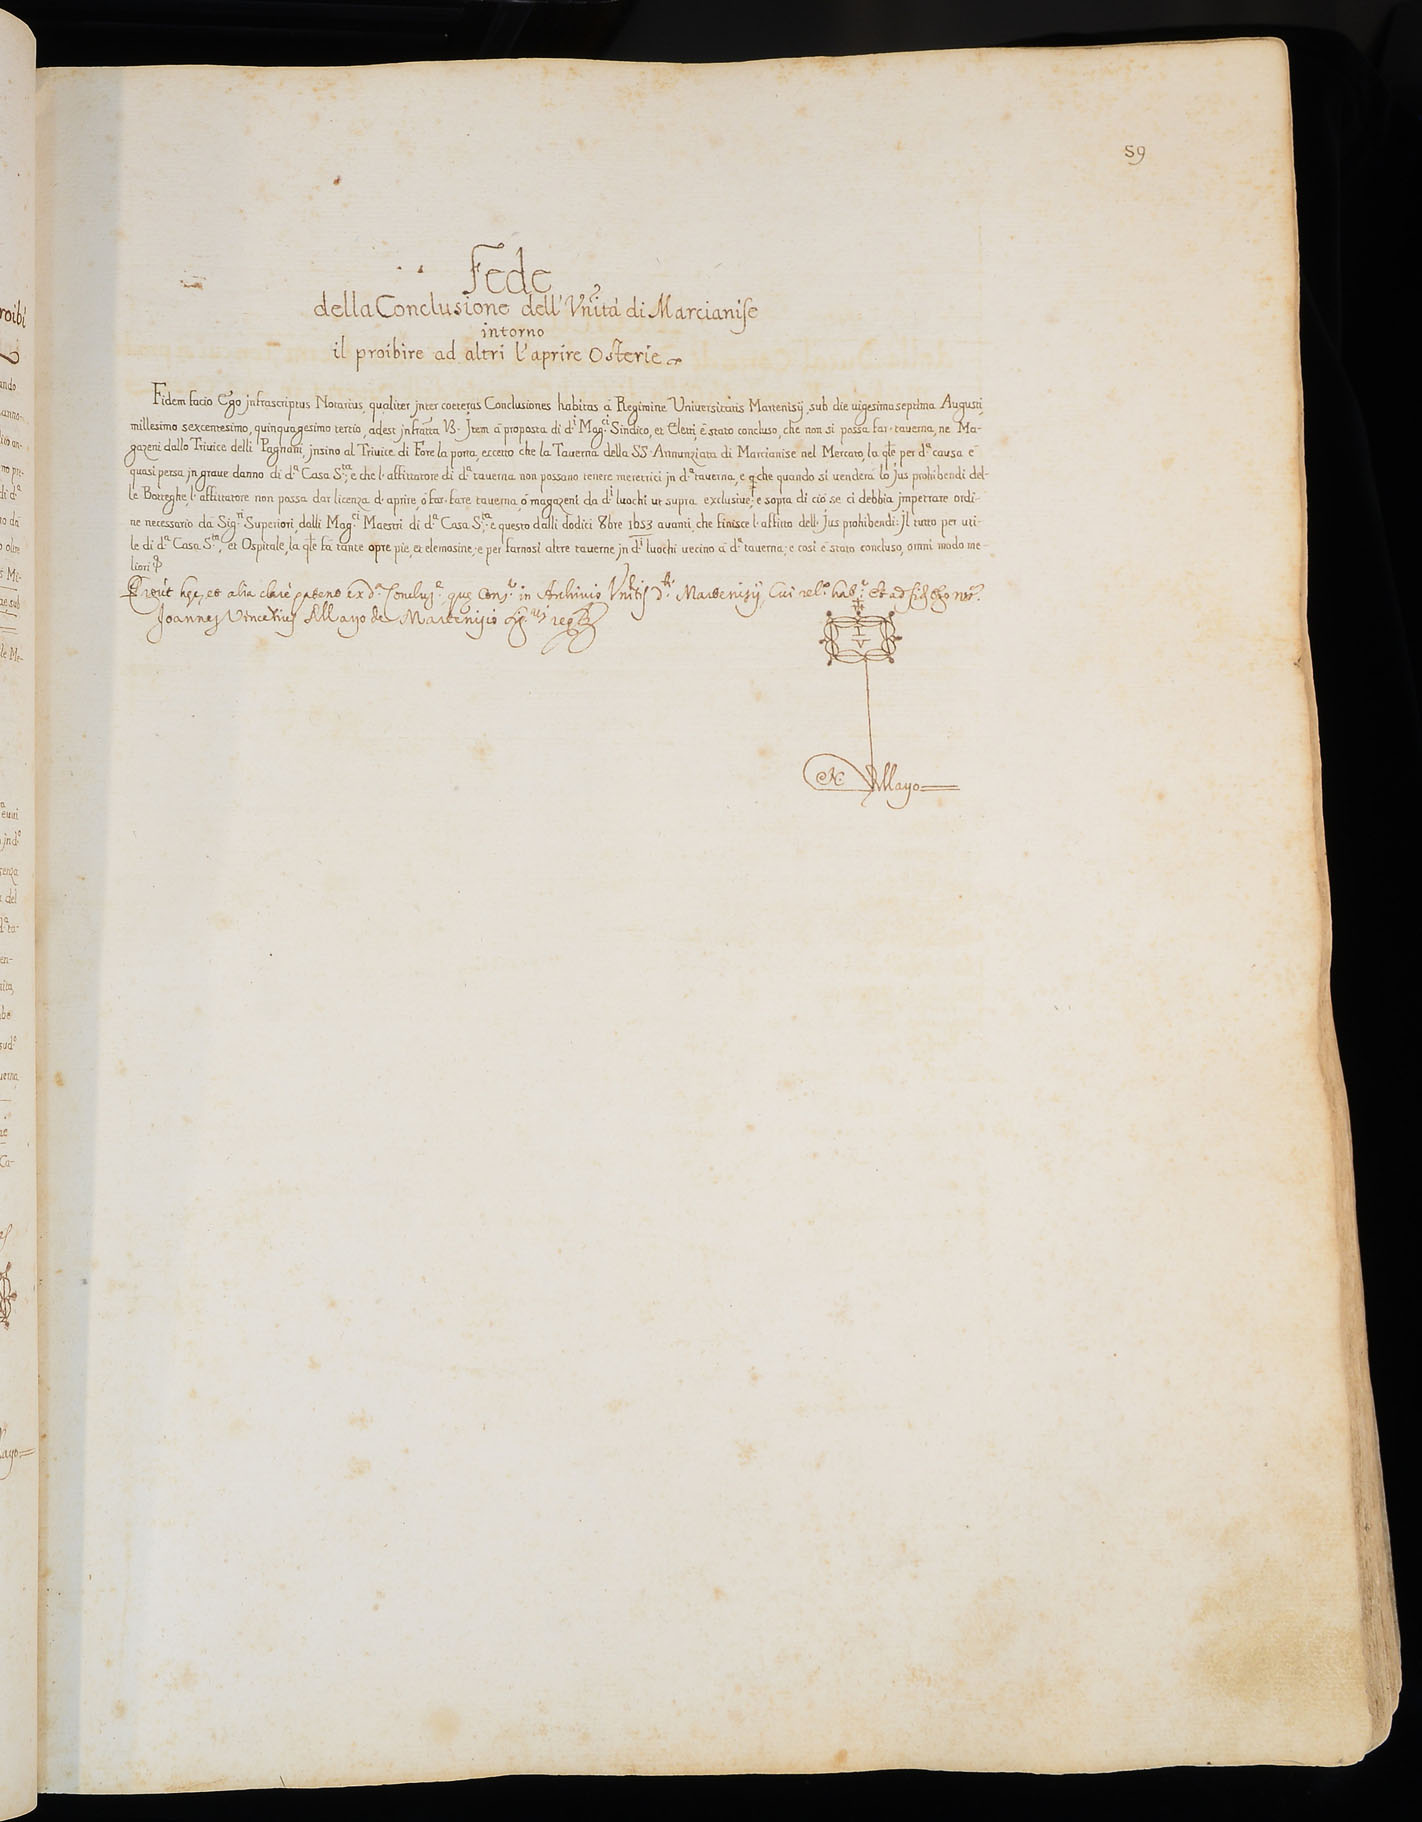 59
Fede
della Conclusione dell' Vnità di Marcianise
intorno
il proibire ad altri l'aprire Osterie
Fidem facio Ego jnfrascriptus Notarius, qualiter jnter coeteras Conclusiones habitas à Regimine Universitatis Martenisij sub die uigesima septima Augusti,
millesimo sexcentesimo, quinquagesimo tertio, adest jnfratta V3. Jtem à proposta di d.i Mag.ci Sindico, et Eletti, è stato concluso, che non si possa far taverna, ne Ma-
gazeni dallo Trivice delli Pagnani, jnsino al Trivice di Fore la porta, eccetto che la Taverna della SS. Annunziata di Marcianise nel Mercato, la qle per d.a causa è
quasi persa, jn graue danno di d.a Casa S.ta; e che l'affittatore di d.a taverna non possano tenere meretrici jn d.a taverna, e che quando si venderà lo Jus prohibendi del-
le Botteghe, l'affittatore non possa dar licenza d'aprire, ò far fare taverna, ò magazeni da d.i luochi ut supra exclusiue; e sopra di ciò se ci debbia jmpetrare ordi-
ne necessario da Sig.ri Superiori, dalli Mag.ci Maestri di d.a Casa S.ta, e questo dalli dodici 8bre 1653 avanti, che finisce l'affitto dell'Jus prohibendi: Jl tutto per uti-
le di d.a Casa S.ta, et Ospitale, la qle fà tante opre pie, et elemosine, e per farnosi altre taverne jn d.i luochi vecino à d.a taverna; e così è stato concluso, omni modo me-
liori
Prout hec, et alia clare patent ex d.a Conclus.e, que Cons.r in Archivio Vnitis d. Martenisij, Cui rel.o hab.r Et ad fid. Ego not.s
Joannes Vincetius de Mayo de Martenisio
I V
N Mayo